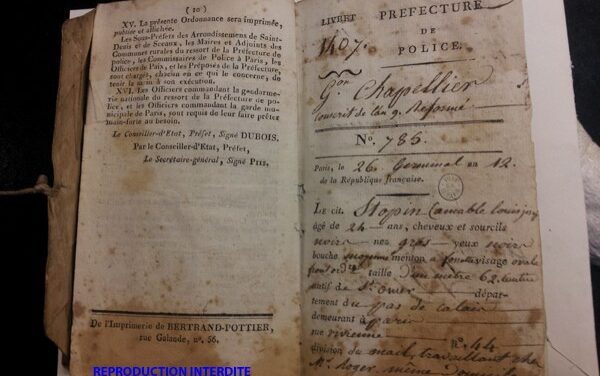 ( 10 )
XV. La présente Ordonnance sera imprimée,
publiée et affichée.
Les Sous-Préfets des Arrondissemens de Saint-
Denis et de Sceaux, les Maires et Adjoints des
Communes rurales du ressort de la Préfecture de
police, les Commissaires de Police à Paris, les
Officiers de Paix, et les Préposés de la Préfecture,
sont chargés, chacun en ce qui le concerne, de
tenir la main à son exécution.
XVI. Les Officiers commandant la gendarme-
rie nationale du ressort de la Préfecture de po-
lice, et les Officiers commandant la garde muni-
cipale de Paris, sont requis de leur faire prêter
main-forte au besoin.
Le Conseiller-d'Etat, Préfet, Signé DUBOIS.
Par le Conseiller-d'Etat, Préfet,
Le Secrétaire-général, Signé PIIS.
De l'Imprimerie de BERTRAND-POTTIER,
rue Galande, n°. 56.
REPRODUCTION INTERDITE
LIVRET PRÉFECTURE
1407. DE
POLICE.
Gon Chapellier
Conscrit de l'an 9. Réformé
N°. 785.
Paris, le 26 Germinal an 12.
de la République française.
LE cit. Stopin
âgé de 24 ans, cheveux et sourcils
noir nez gros yeux noirs
bouche moyenne menton à fossette visage ovale
front ordre taille d'un mètre 62 centim
natif de St omer dépar-
tement du pas de calais
demeurant à paris
rue vivienne N°. 44
division du mail, travaillant chez
Mr. Roger même domicile